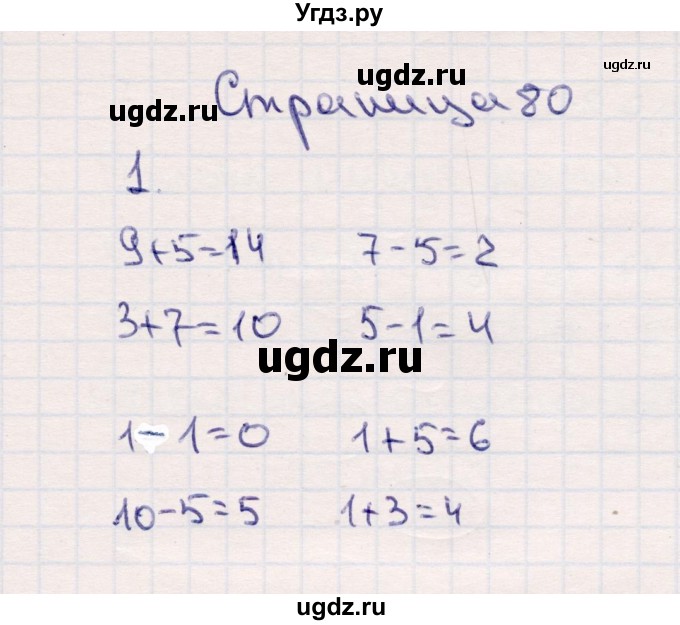 Угдз.ру
ugdz.ru
ugdz.ru
ugdz.ru
Страница 80
1.
9+5=14 7-5=2
3+7=10 5-1=4
ugdz.ru
1-1=0 1+5=6
10-5=5 1+3=4
ugdz.ru